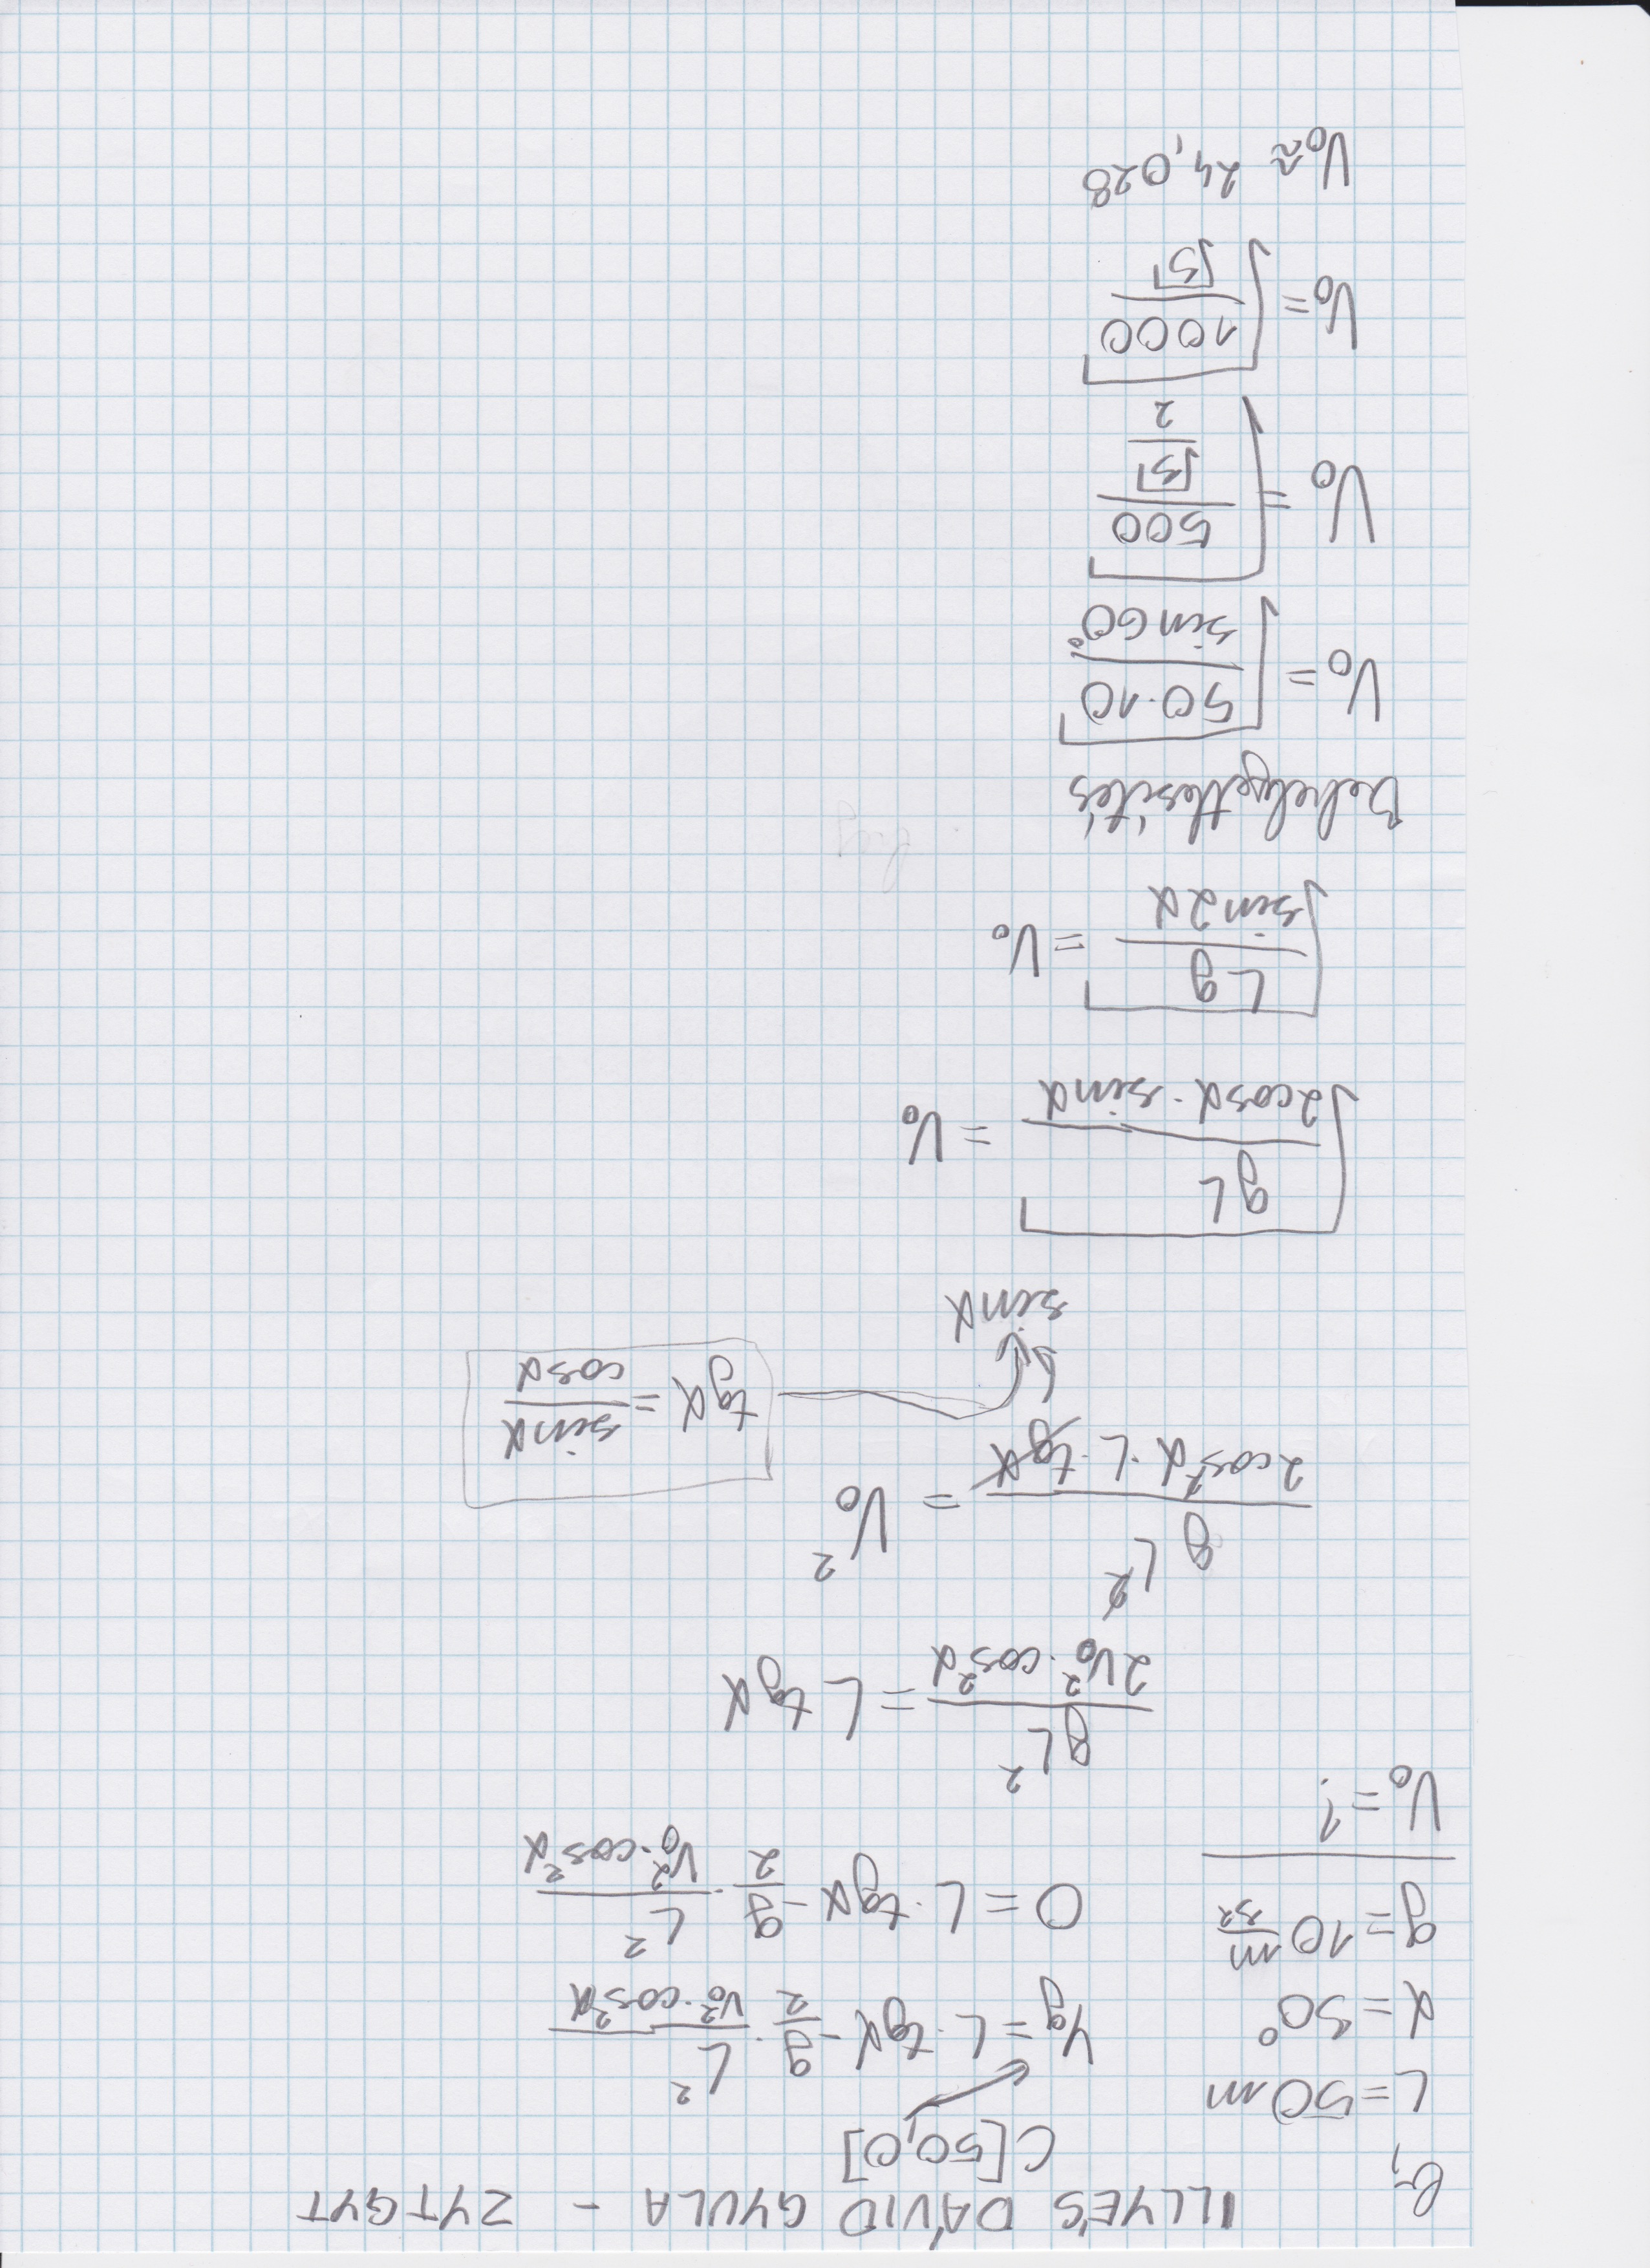 ILLYÉS DÁVID GYULA - ZYTGYT
b,
C[50,0]
L=50m
α=30°
g=10 m/s²
V₀=?
Yg=L·tgα-g/2·L²/(V₀²·cos²α)
0=L·tgα-g/2·L²/(V₀²·cos²α)
gL²/(2V₀²·cos²α)=L tgα
gL²/(2cos²α·L·tgα)=V₀²
tgα=sinα/cosα
sinα
√(gL/(2cosα·sinα))=V₀
√(Lg/sin2α)=V₀
Behelyettesítés
V₀=√(50·10/sin60°)
V₀=√(500/(√3/2))
V₀=√(1000/√3)
V₀≈24,028